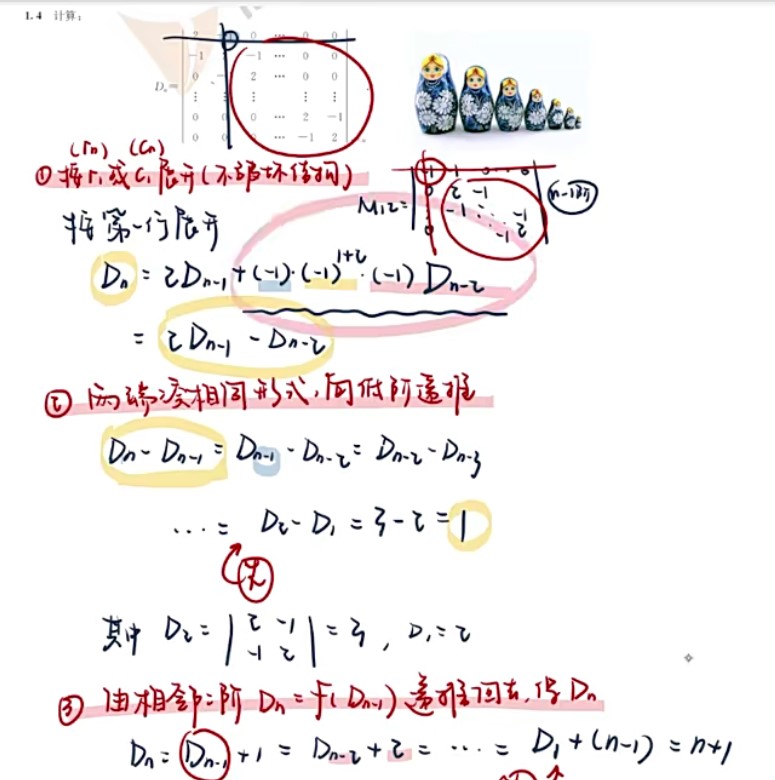 1.4 计算：
D_n =
2 -1 0 … 0 0
-1 2 -1 … 0 0
0 -1 2 … 0 0
⋮ ⋮ ⋮ ⋮ ⋮
0 0 0 … 2 -1
0 0 0 … -1 2
(rn) (Cn)
① 按r₁或C₁展开(不破坏结构)
M₁₂ =
-1 -1 0 … 0
0 2 -1
-1 ⋱ -1
0 -1 2
n-1阶
按第一行展开
Dn = 2Dn-1 + (-1)·(-1)^{1+2}·(-1) Dn-2
= 2Dn-1 - Dn-2
② 两端凑相同形式,向低阶递推
Dn - Dn-1 = Dn-1 - Dn-2 = Dn-2 - Dn-3
… = D2 - D1 = 3 - 2 = 1
其中 D2 = | 2 -1 | = 3 , D1 = 2
-1 2
③ 由相邻二阶 Dn = f(Dn-1) 递推回去,得 Dn
Dn = Dn-1 + 1 = Dn-2 + 2 = … = D1 + (n-1) = n+1